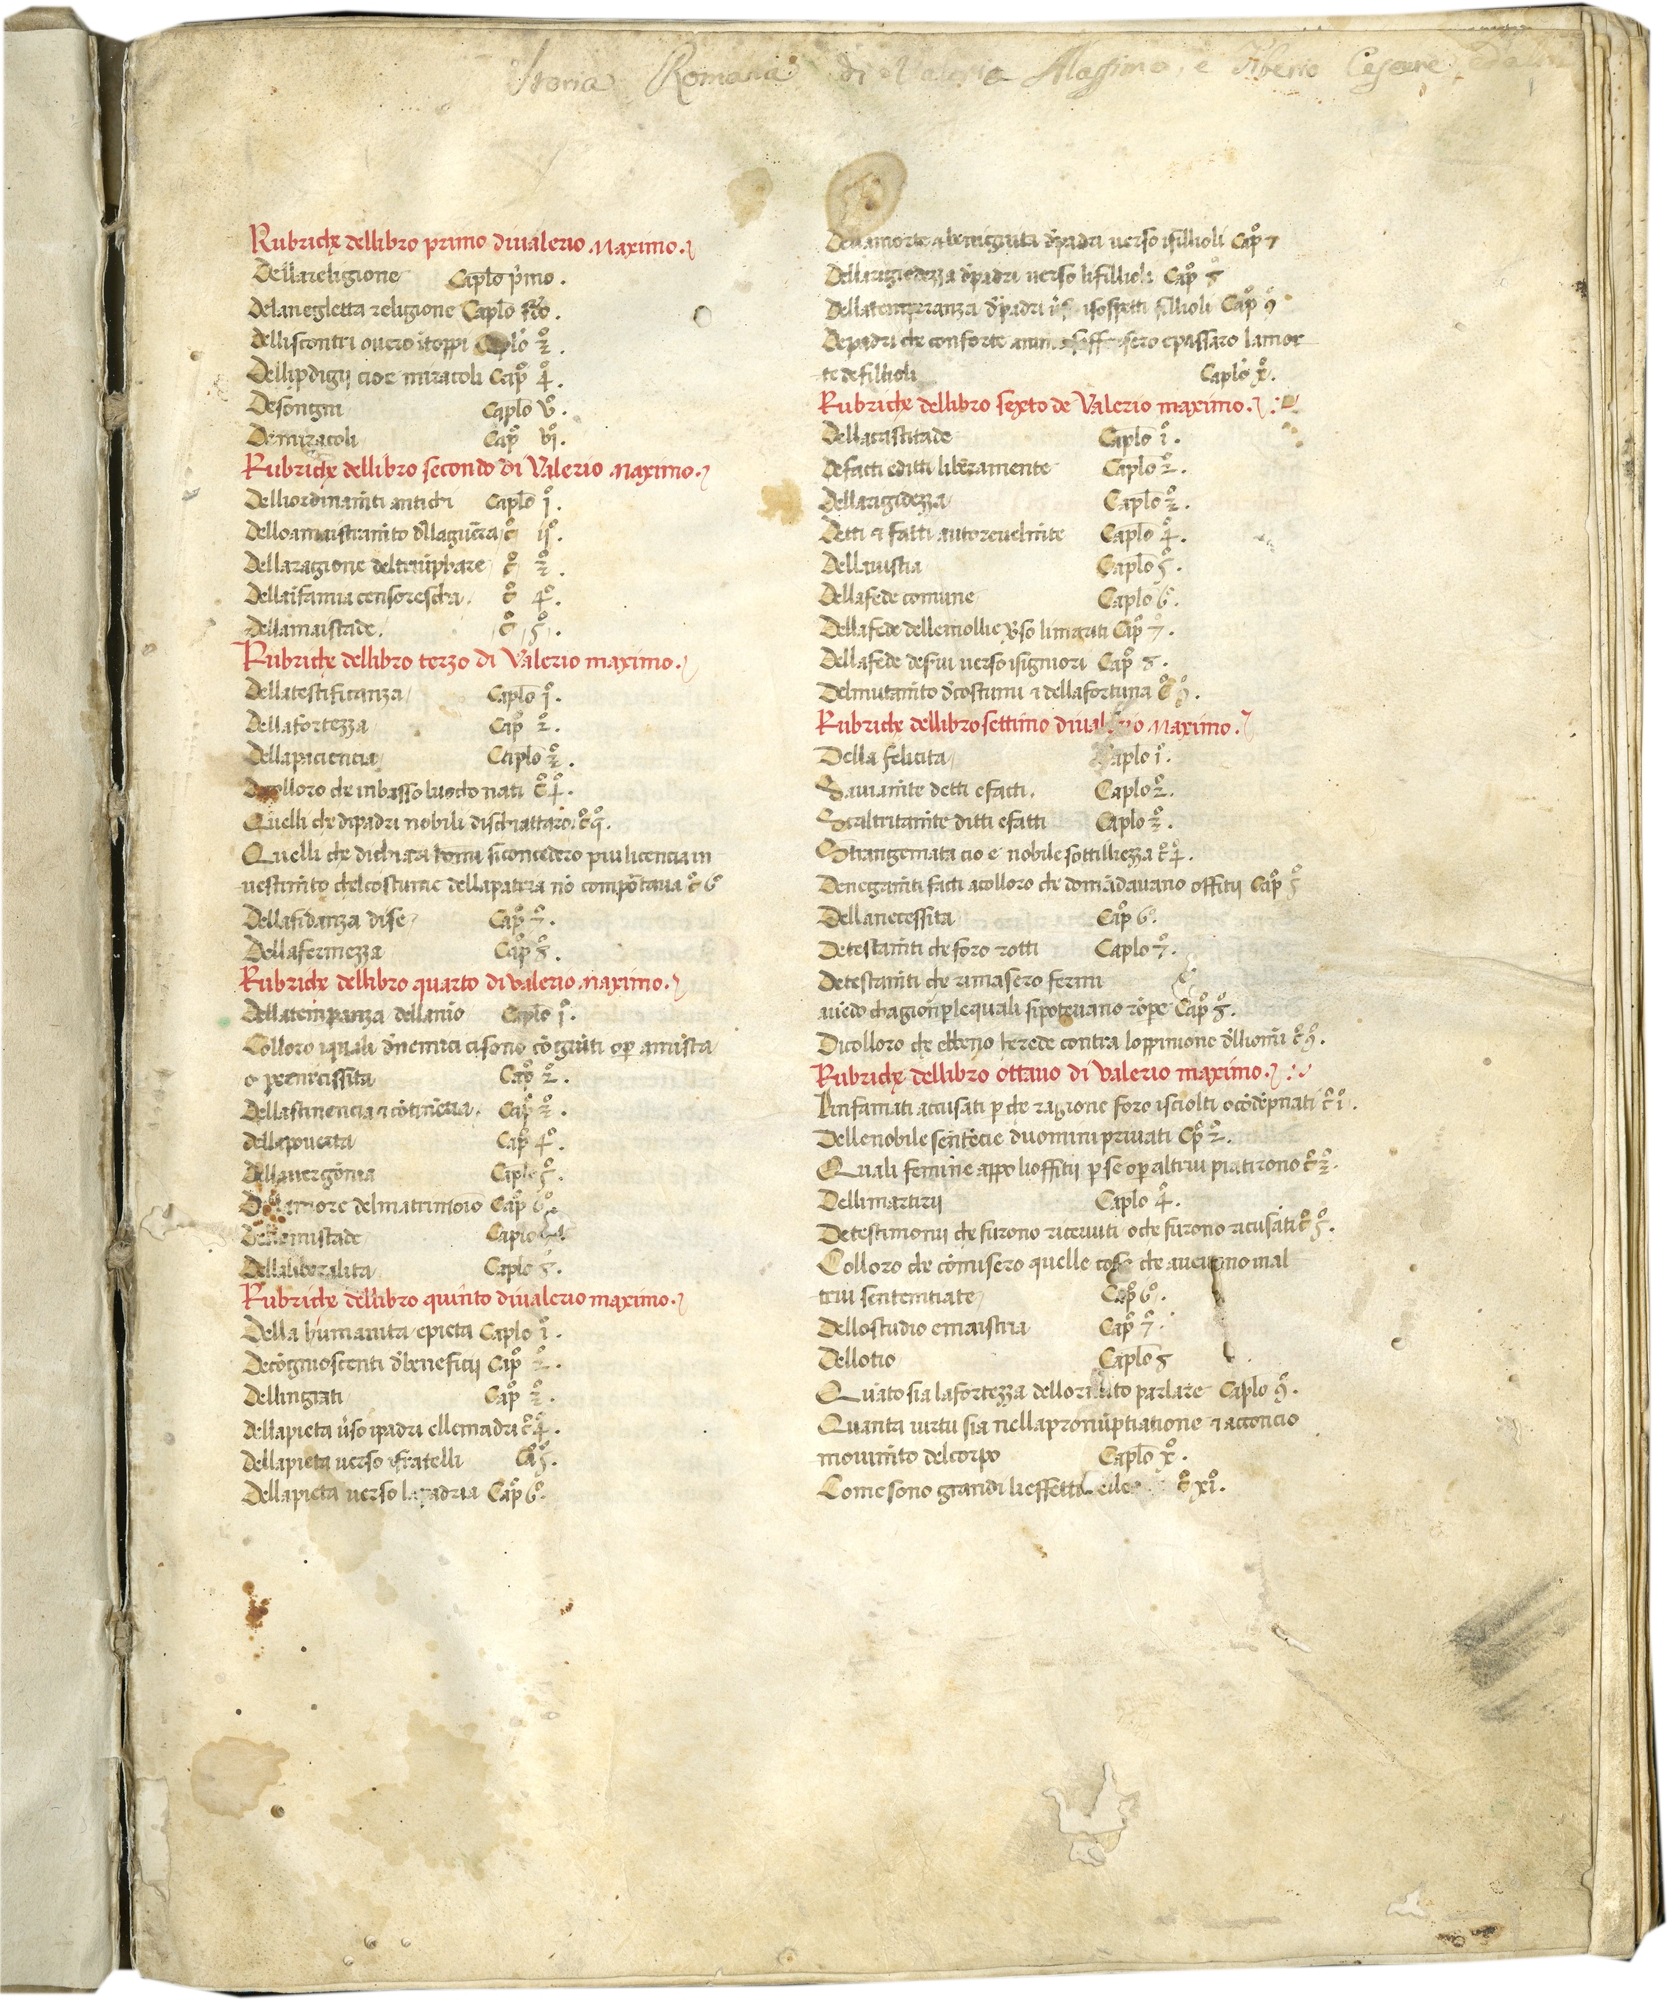 Storia Romana di Valerio Massimo, e Tiberio Cesare
Rubriche dellibro primo diualerio Maximo.
Dellareligione Caplo p̄mo.
Delanegletta religione Caplo
Delliscontri ouero itoppi Caplo 3̊.
Dellip̄digij cioe miracoli Cap̊ 4̊.
Desongni Caplo v̊.
Demiracoli Cap̊ vi̊.
Rubriche dellibro secondo di Valerio Maximo.
Delliordinam̄ti antichi Caplo i̊.
Delloamaistram̄to d̄llaguēra c̊ ii̊.
Dellaragione deltriūphare c̊ 3̊.
Dellaīfamia censorescha. c̊ 4̊.
Dellamaistade. c̊ 5̊.
Rubriche dellibro terzo di Valerio maximo.
Dellatestificanza Caplo i̊.
Dellafortezza Cap̊ 2̊.
Dellapaciencia Caplo 3̊.
Dicolloro che inbasso luocho nati c̊ 4̊.
Quelli che dipadri nobili dischiattaro. c̊
Quelli che dichiari homi siconcedero piu licencia in
uestim̄to chelcostume dellapatria nō comportaua c̊ 6̊
Dellafidanza dise Cap̊ 7̊.
Dellafermezza Cap̊ 8̊.
Rubriche dellibro quarto diualerio maximo.
Dellatemp̄anza dellanīo Caplo i̊.
Colloro iquali d̄nemici cisono cōgiūti op̄ amista
o per necissita Cap̊ 2̊.
Dellastinencia ⁊ cōtinēcia. Cap̊ 3̊.
dellapouerta Cap̊ 4̊.
Dellauergōnia Caplo 5̊.
Dellamore delmatrimoīo Cap̊ 6̊
Dellamistade Caplo
Dellaliberalita Caplo 8̊.
Rubriche dellibro quinto diualerio maximo.
Della humanita epieta Caplo i̊.
Decōgnioscenti d̄beneficij Cap̊ 2̊.
Dellingrati Cap̊ 3̊.
dellapieta ūso ipadri ellemadri c̊ 4̊.
Dellapieta uerso ifratelli Cå 5̊.
Dellapieta uerso lapadria Cap̊ 6̊.
Dellamorte ⁊ benignita d̄padri uerso ifillioli Cap̊ 7
Dellarigidezza d̄padri uerso lifillioli Cap̊ 8̊
Dellatemperanza d̄padri isospetti fillioli Cap̊ 9̊
Depadri che conforte epassaro lamor
te defillioli Caplo x̊.
Rubriche dellibro sexto de Valerio maximo.
Dellacastitade Caplo i̊.
Defatti editti liberamente Caplo 2̊.
Dellarigidezza Caplo 3̊.
Detti ⁊ fatti autoreuelm̄te Caplo 4̊.
Dellaiustia Caplo 5̊.
Dellafede comune Caplo 6̊.
Dellafede dellemollie ūso limariti Cap̊ 7̊.
Dellafede deserui uerso isigniori Cap̊ 8̊.
Delmutam̄to d̄costumi ⁊ dellafortuna c̊ 9̊.
Rubriche dellibro settimo diualerio Maximo.
Della felicita Caplo i̊.
Sauiam̄te detti efatti. Caplo 2̊.
Scaltritam̄te ditti efatti Caplo 3̊.
Strangemata cio e nobile sottilliezza c̊ 4̊.
Denegam̄ti fatti acolloro che domādauano offitij Cap̊ 5̊
Dellanecessita Cap̊ 6̊.
Detestam̄ti che foro rotti Caplo 7̊.
Detestam̄ti che rimasero fermi
auēdo chagioni p̄lequali sipoteuano rōpe Cap̊ 8̊.
Dicolloro che ebbeno herede contra loppinione d̄lliomī c̊ 9̊.
Rubriche dellibro ottauo di Valerio maximo.
Linfamati accusati p̄ che ragione foro isciolti ocōdēpnati c̊ i̊.
Dellenobile sentēcie duomini priuati Cp̊ 2̊.
Quali femine appo lioffitij p̄ se op̄ altrui piatirono c̊ 3̊.
Dellimartirij Caplo 4̊.
Detestimonij che furono riceuuti oche furono ricusati c̊ 5̊.
Colloro che cōmisero quelle cose che mal
trui sentemtiate Cap̊ 6̊.
Dellostudio emaistria Cap̊ 7̊.
Dellotio Caplo 8
Quāto sia lafortezza parlare Caplo 9̊.
Quanta uirtu sia nellapronūptiatione ⁊ acconcio
mouim̄to delcorpo Caplo x̊.
Come sono grandi lieffetti c̊ xi̊.